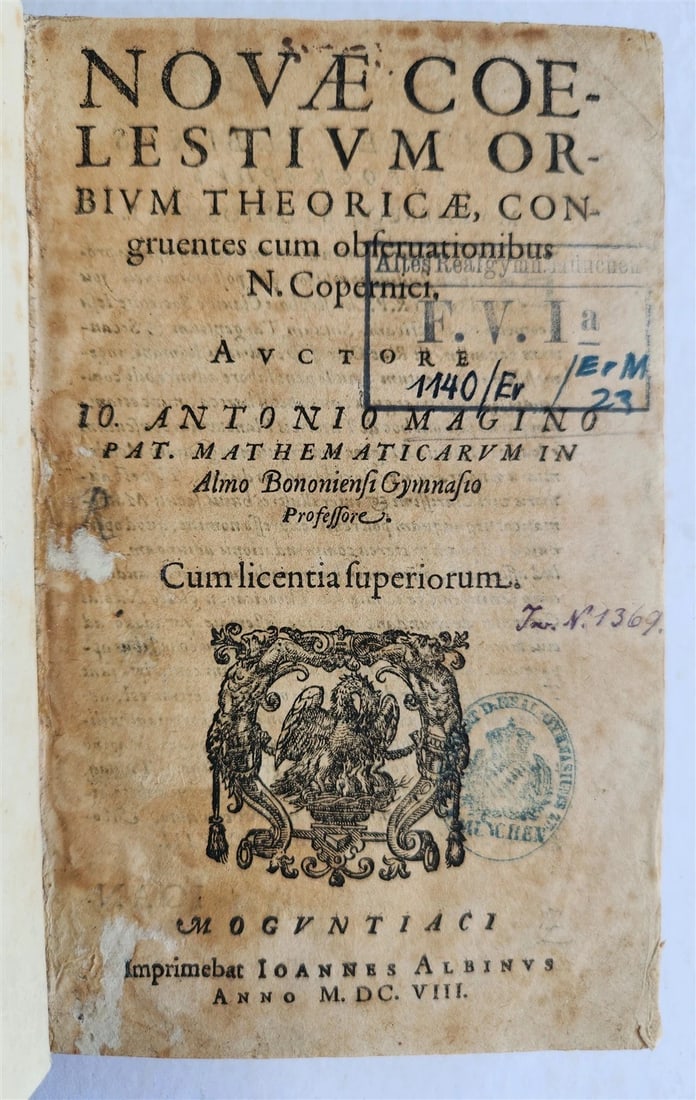 NOVÆ COE-
LESTIVM OR-
BIVM THEORICÆ, CON-
gruentes cum obſeruationibus
N. Copernici,
Altes Realgymn. München
F. V. Ia
1140/Er /ErM
23
AVCTORE
IO. ANTONIO MAGINO
PAT. MATHEMATICARVM IN
Almo Bononienſi Gymnaſio
Profeſſore.
Cum licentia ſuperiorum.
Inv. N. 1369.
MÜNCHEN
MOGVNTIACI
Imprimebat IOANNES ALBINVS
ANNO M. DC. VIII.